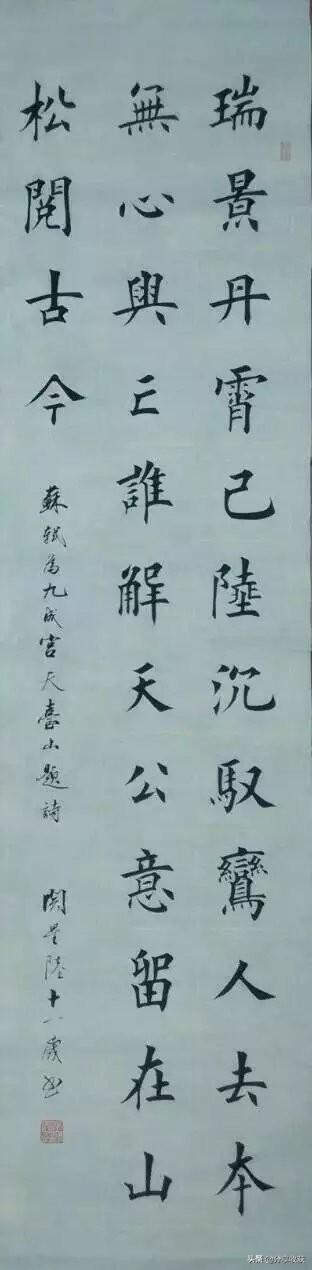 瑞景丹霄已陸沉馭鸞人去本
無心興亡誰解天公意留在山
松閱古今
蘇軾為九成宮天臺山題詩
陸十一歲書